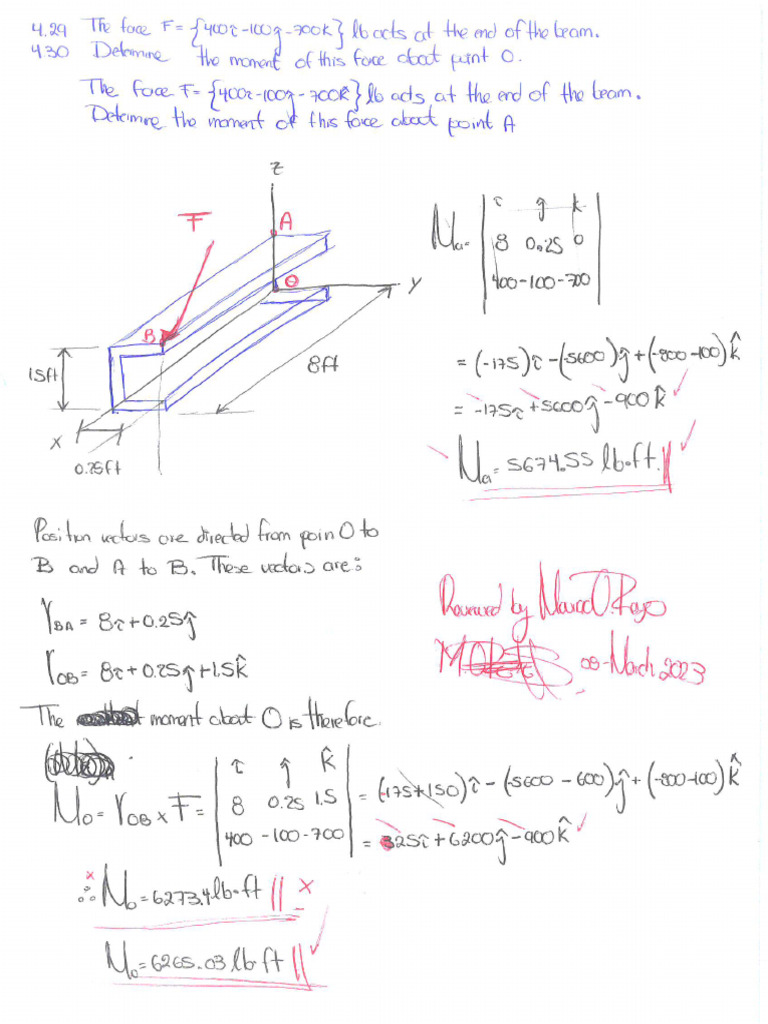 4.29 The force F = {400i - 100j - 700k} lb acts at the end of the beam.
4.30 Determine the moment of this force about point O.
The force F = {400i - 100j - 700k̂} lb acts at the end of the beam.
Determine the moment of this force about point A
z
F
A
O
y
B
1.5ft
8ft
x
0.25ft
i j k
Ma= 8 0.25 0
400 -100 -700
= (-175)i - (-5600)j + (-800-100)k̂
= -175i + 5600j - 900k̂ ✓
Ma = 5674.55 lb·ft. ✓
Position vectors are directed from poin O to
B and A to B. These vectors are:
rBA = 8i + 0.25j
rOB = 8i + 0.25j + 1.5k̂
The moment about O is therefore.
i j k̂
Mo = rOB x F = 8 0.25 1.5 = (-175+150)i - (-5600-600)j + (-800-100)k̂
400 -100 -700 = 325i + 6200j - 900k̂ ✓
x
∴ Mo = 6273.4 lb·ft x
Mo = 6265.03 lb ft ✓
by Marco O.
08-March 2023